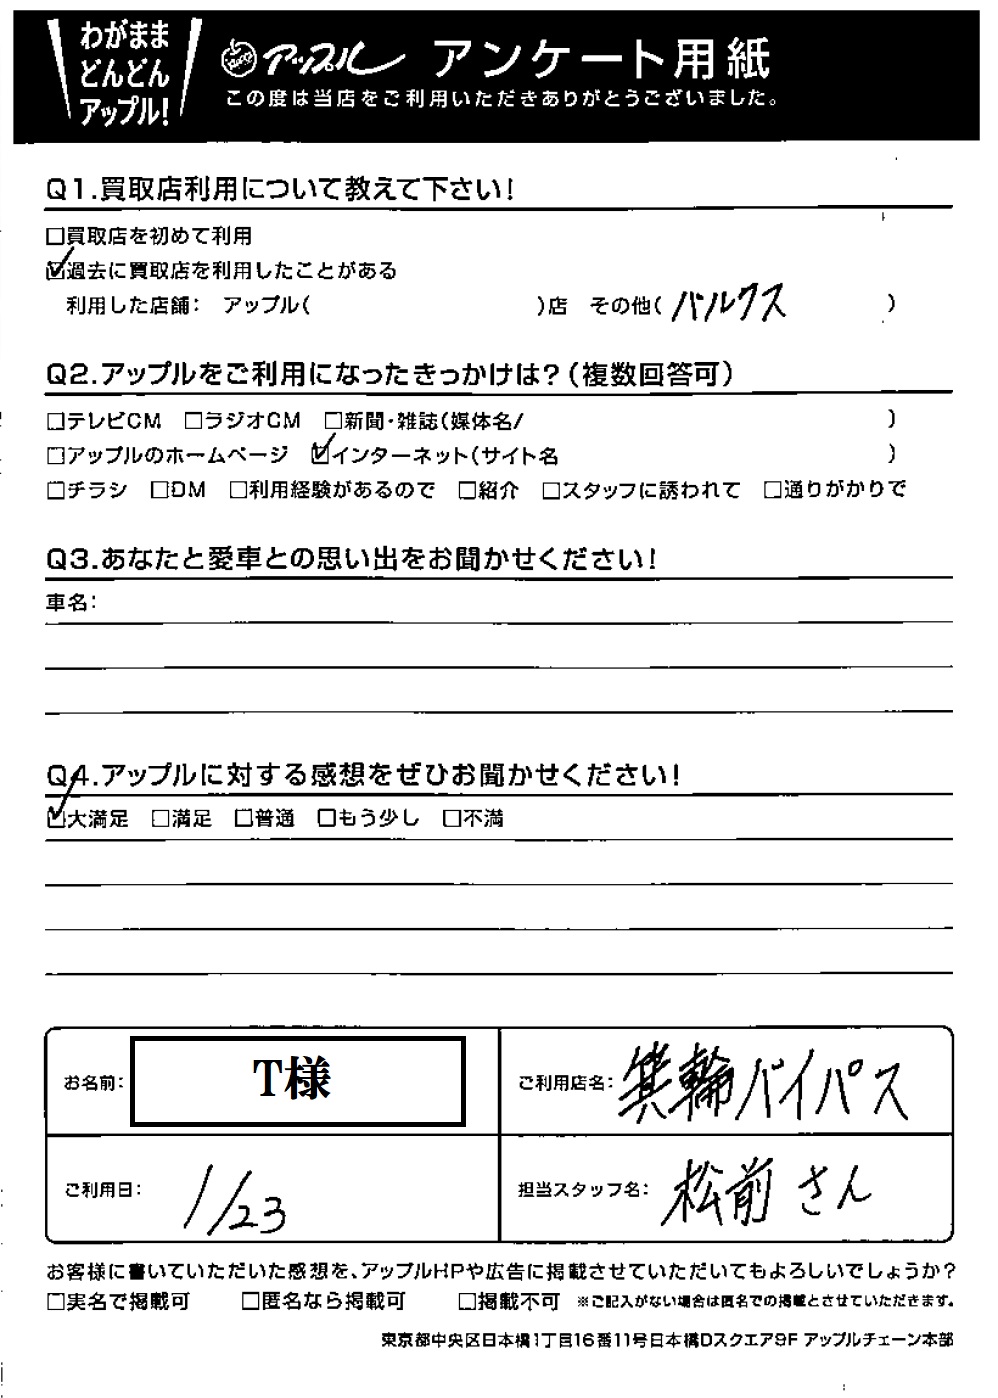 わがまま
どんどん
アップル!
アップル アンケート用紙
この度は当店をご利用いただきありがとうございました。
Q1.買取店利用について教えて下さい!
□買取店を初めて利用
☑過去に買取店を利用したことがある
利用した店舗: アップル( )店 その他( バルクス )
Q2.アップルをご利用になったきっかけは?(複数回答可)
□テレビCM □ラジオCM □新聞・雑誌(媒体名/ )
□アップルのホームページ ☑インターネット(サイト名 )
□チラシ □DM □利用経験があるので □紹介 □スタッフに誘われて □通りがかりで
Q3.あなたと愛車との思い出をお聞かせください!
車名:
Q4.アップルに対する感想をぜひお聞かせください!
☑大満足 □満足 □普通 □もう少し □不満
お名前: T様
ご利用店名: 箕輪バイパス
ご利用日: 1/23
担当スタッフ名: 松前さん
お客様に書いていただいた感想を、アップルHPや広告に掲載させていただいてもよろしいでしょうか?
□実名で掲載可 □匿名なら掲載可 □掲載不可 ※ご記入がない場合は匿名での掲載とさせていただきます。
東京都中央区日本橋1丁目16番11号日本橋Dスクエア9F アップルチェーン本部